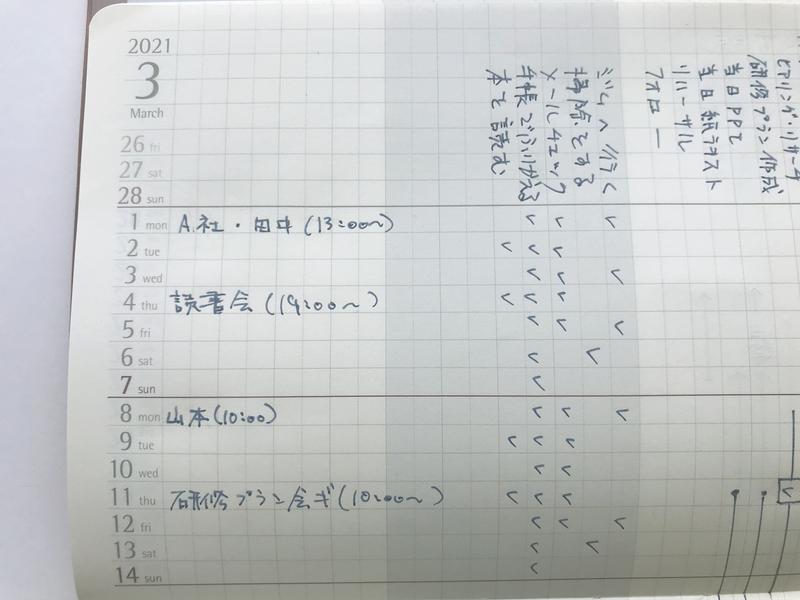 2021
3
March
26 fri
27 sat
28 sun
1 mon A社・田中(13:00〜)
2 tue
3 wed
4 thu 読書会(19:00〜)
5 fri
6 sat
7 sun
8 mon 山本(10:00)
9 tue
10 wed
11 thu 研修プラン会ギ(10:00〜)
12 fri
13 sat
14 sun
本を読む
手帳でふりかえる
メールチェック
掃除をする
ジムへ行く
フォロー
リハーサル
当日紙テキスト
当日PPT
研修プラン作成
ヒアリング・リサーチ